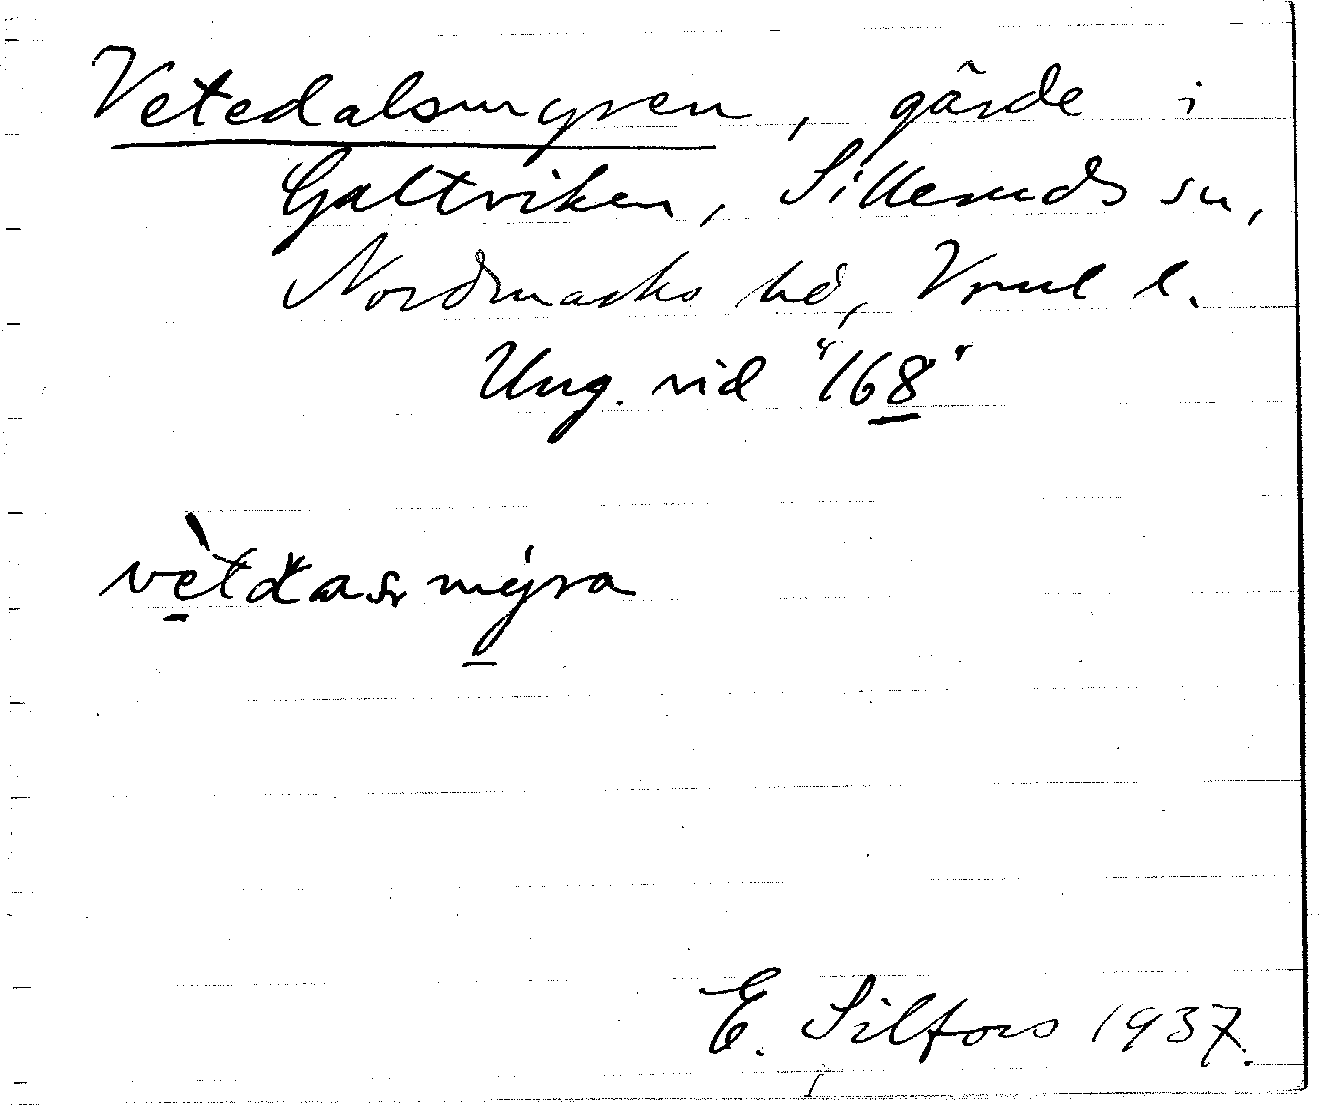 Vetedalsmyren, gärde i
Galtviken, Silleruds sn,
Nordmarks hd, Vrml l.
Ung. vid "168"
vètdas myra
E. Silfors 1937.